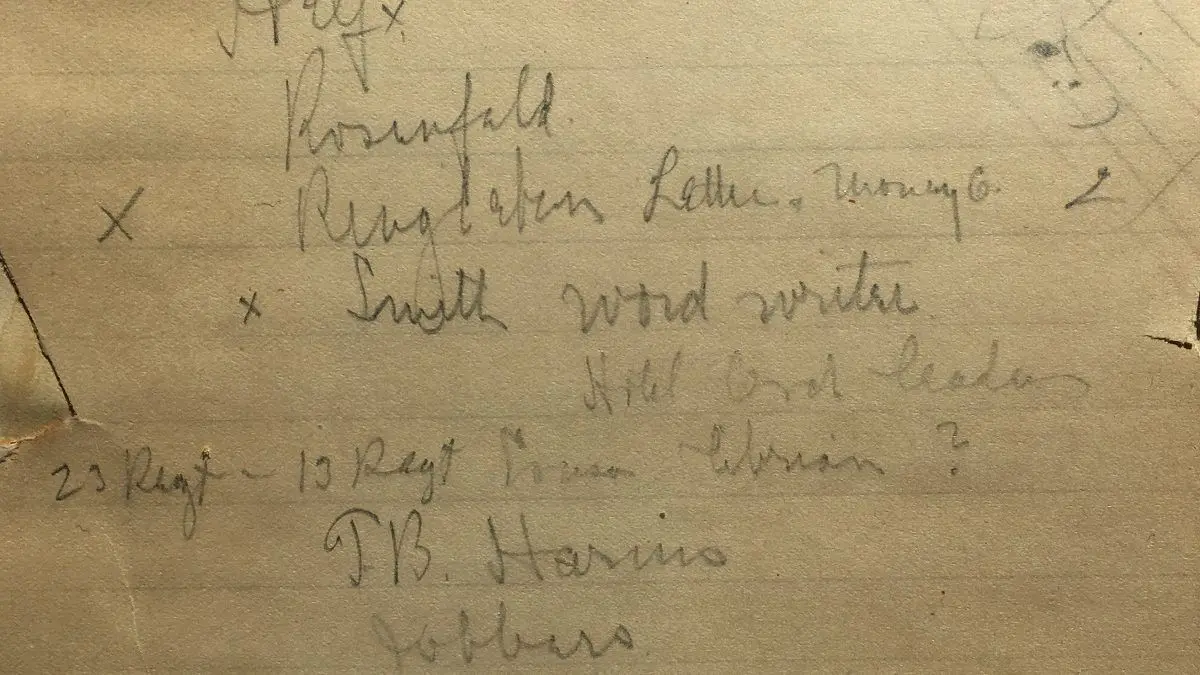 Rosenfeld.
X Ringleben Letter. Money O. 2
x Smith word writer.
Hotel Card Leaders
23 Regt - 13 Regt ?
T.B. Harms
Jobbers